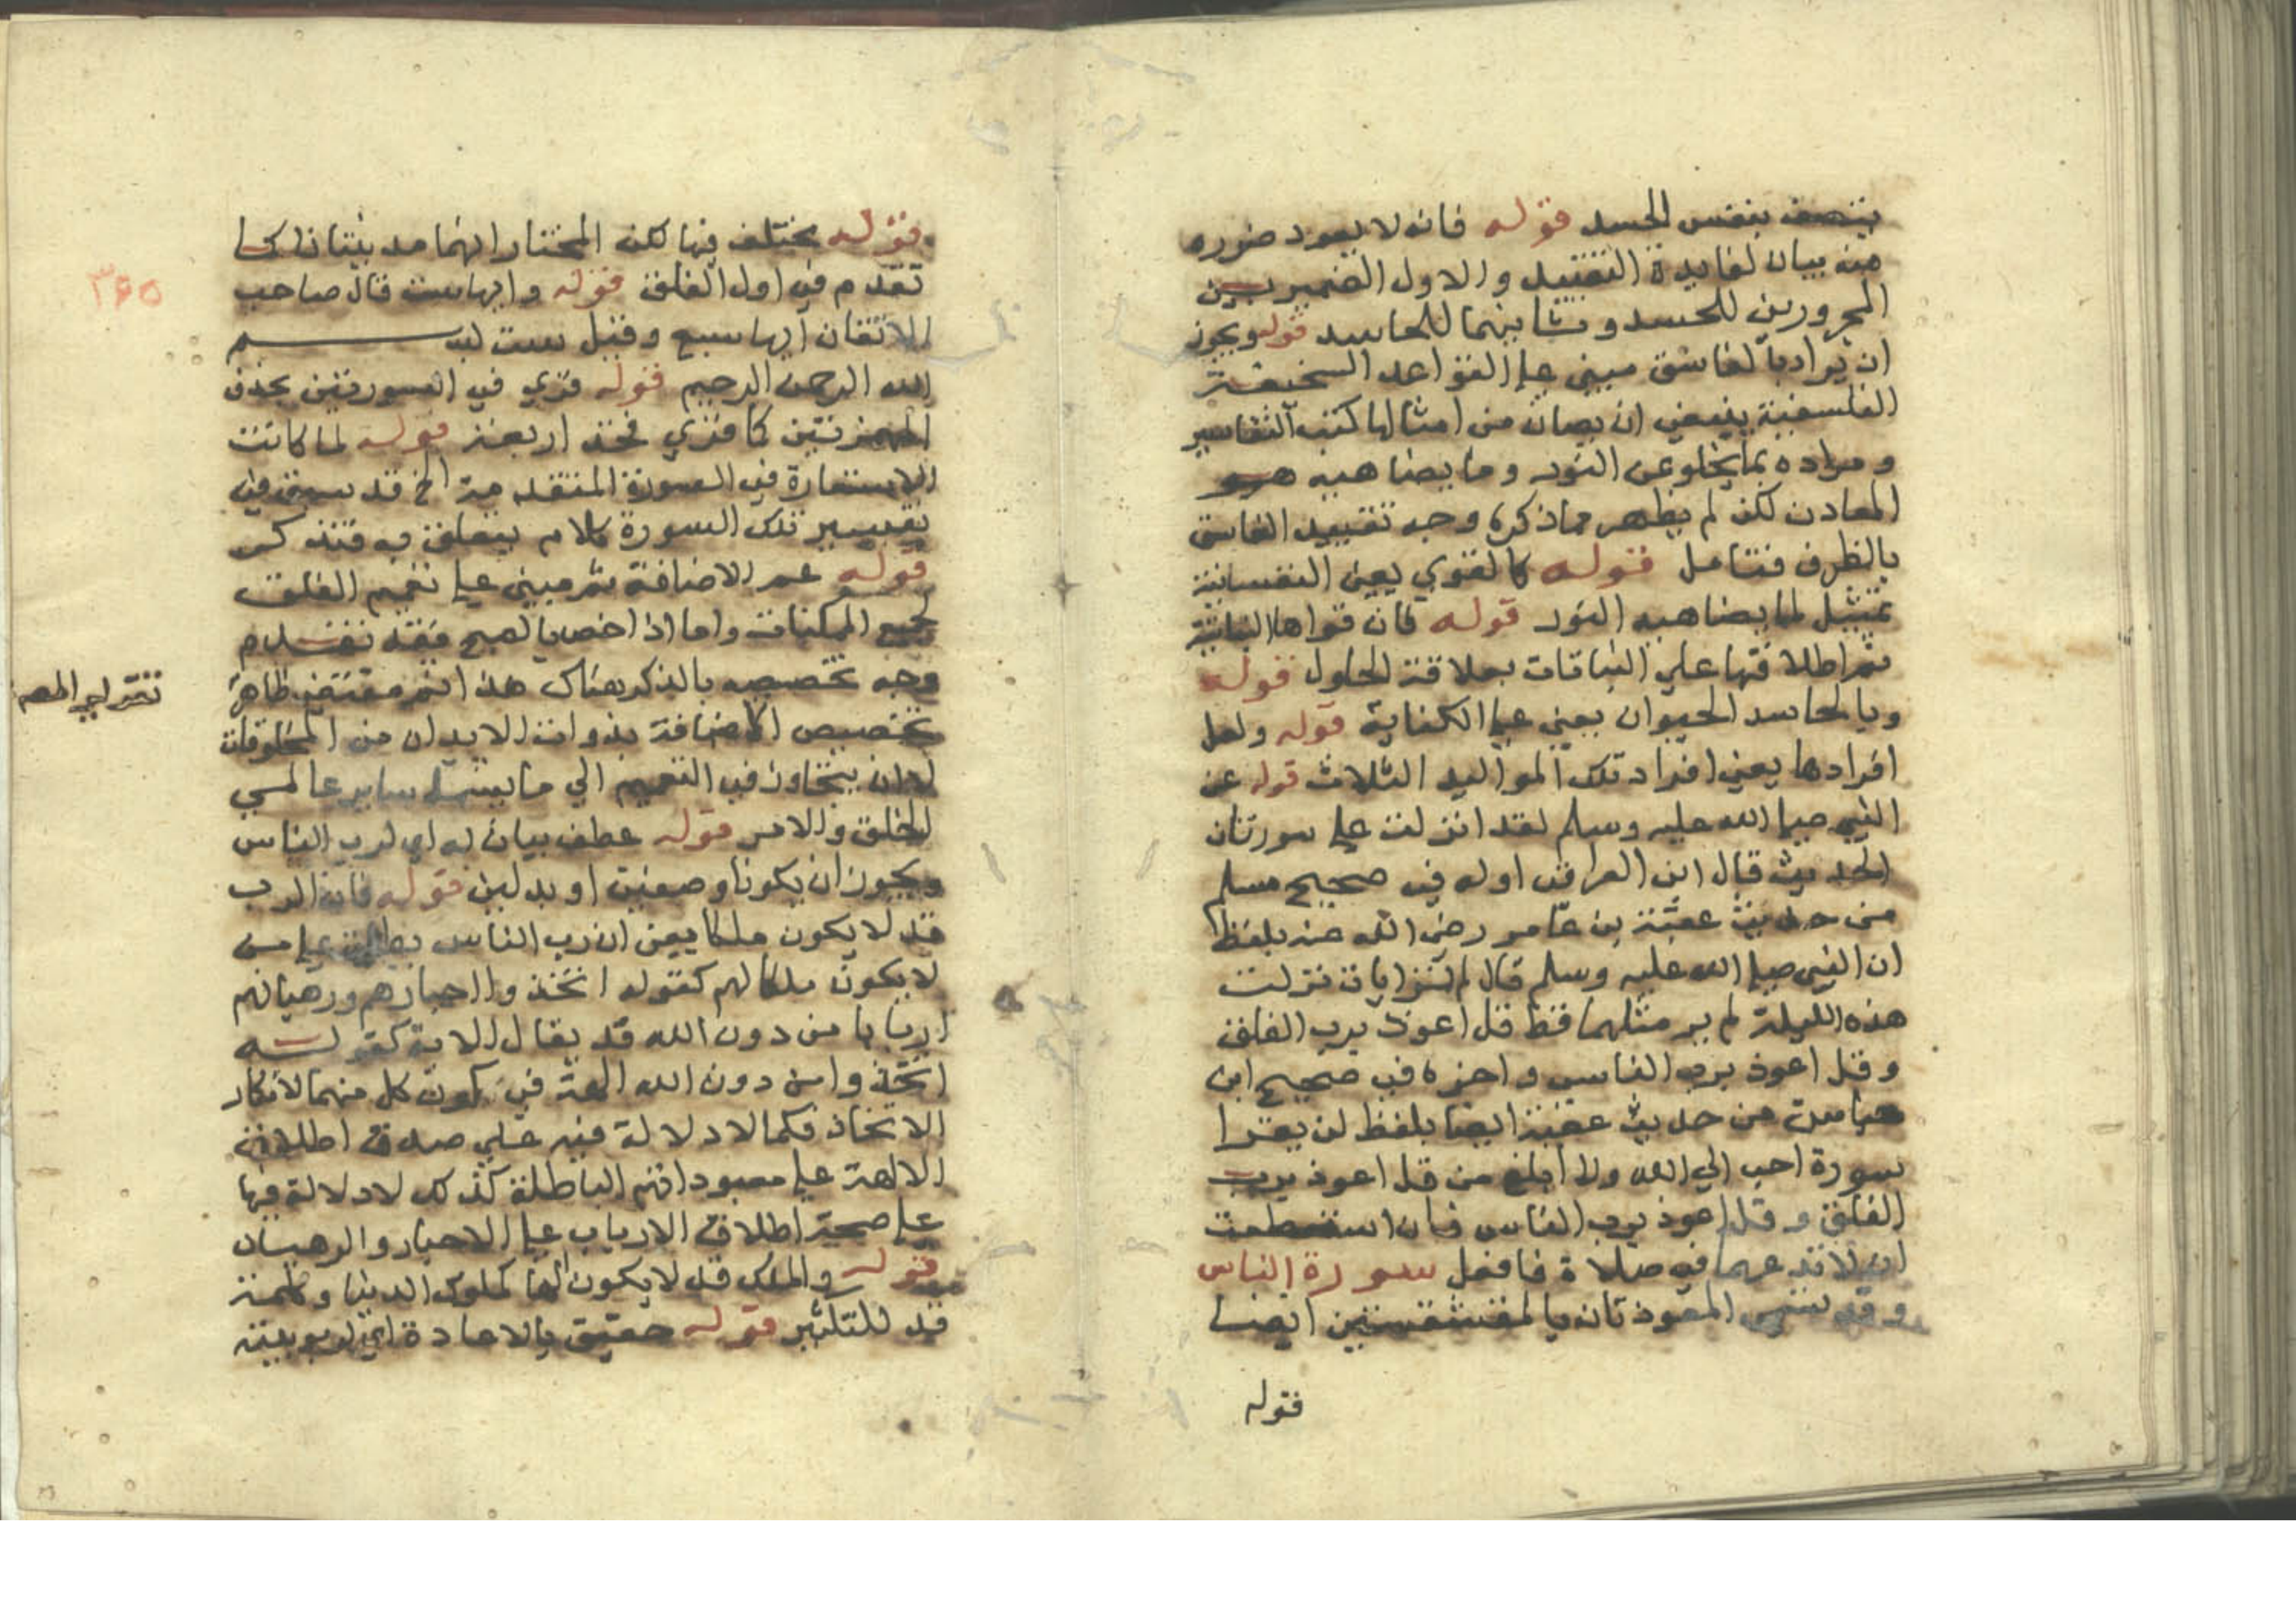 يتصف بنفس الحسد قوله فانه لا يعود ضرره
منه بيان لفايدة التقييد والاول الضميرين
المجرورين للحسد وثانيهما للحاسد قوله ويجوز
ان يراد بالغاسق مبني على القواعد السخيفة
الفلسفية ينبغي ان يصان من امثالها كتب التفاسير
ومراده بما يخلو عن النور وما يضاهيه هو
المعادن لكن لم يظهر مما ذكره وجه تقييد الغاسق
بالظرف فتامل قوله كالقوي يعني النفسانية
تمثيل لما يضاهيه النور قوله فان قواها النباتية
ثم اطلاقها علي النباتات بعلاقة الحلول قوله
وبالحاسد الحيوان يعني على الكناية قوله ولعل
افرادها يعني افراد تلك المواليد الثلاث قوله عن
النبي صلى الله عليه وسلم لقد انزلت علي سورتان
الحديث قال ابن العراقي اوله في صحيح مسلم
من حديث عقبة بن عامر رضي الله عنه بلفظ
ان النبي صلى الله عليه وسلم قال الم تر ايات نزلت
هذه الليلة لم ير مثلهما قط قل اعوذ برب الفلق
وقل اعوذ برب الناس واخره في صحيح ابن
حبان من حديث عقبة ايضا بلفظ لن يقرا
سورة احب الي الله ولا ابلغ من قل اعوذ برب
الفلق وقل اعوذ برب الناس فان استطعت
ان لا تدعهما في صلاة فافعل سورة الناس
وقد تسمى المعوذتان بالمقشقشتين ايضا
قوله
قوله مختلف فيها لكن المختار انهما مدنيتان كما
تقدم في اول الفلق قوله وايها ست قال صاحب
الاتقان ايها سبع وقيل ست بسم
الله الرحمن الرحيم قوله قري في السورتين بحذف
الهمزتين كما قري فخذ اربعة قوله لما كانت
الاستعاذة في السورة المتقدمة الخ قد سبق في
تفسير تلك السورة كلام يتعلق به فتذكر
قوله عمم الاضافة ثم مبني على تعميم الفلق
لجميع الممكنات واما اذا اخص بالصبح فقد تقدم
وجه تخصيصه بالذكر هناك هذا ثم مقتضى ظاهر
تقرير المص
تخصيص الاضافة بذوات الابدان من المخلوقات
لا ان يتجاوز في التعميم الي ما يشمل ساير عالمي
الخلق والامر قوله عطف بيان له اي لرب الناس
ويجوز ان يكونا وصفين او بدلين قوله فان الرب
قد لا يكون ملكا يعني ان رب الناس يطلق على من
لا يكون ملكا لهم كقوله اتخذوا احبارهم ورهبانهم
اربابا من دون الله قد يقال الاية كقوله
اتخذوا من دون الله الهة في كون كل منهما لانكار
الاتخاذ فكما لا دلالة فيه علي صدق اطلاق
الالهة على معبوداتهم الباطلة كذلك لا دلالة فيها
على صحة اطلاق الارباب على الاحبار والرهبان
قوله والملك قد لا يكون الها كملوك الدنيا وكلمة
قد للتكثير قوله حقيق بالاعادة اي لربوبيته
٣٦٥